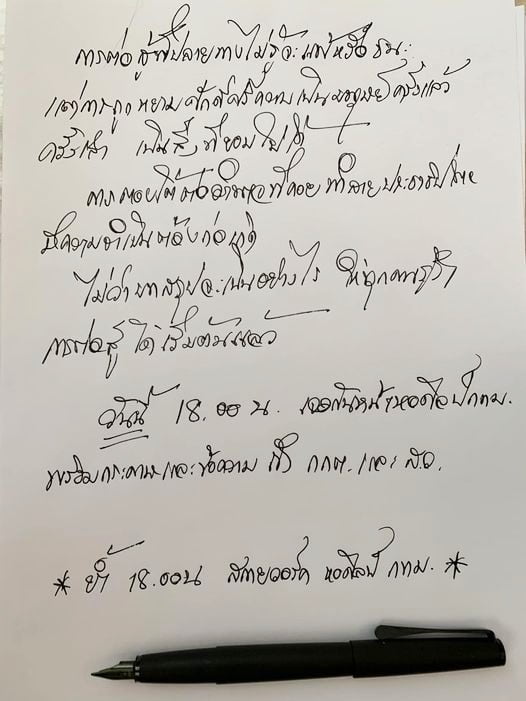 การต่อสู้ที่ปลายทางไม่รู้จะแพ้หรือชนะ
แต่การถูกหยามศักดิ์ศรีความเป็นมนุษย์ครั้งแล้ว
ครั้งเล่า เป็นสิ่งที่ยอมไม่ได้
การตอบโต้ต่ออำนาจที่คอยทำลายประชาธิปไตย
มีความจำเป็นต้องก่อเกิด
ไม่ว่าบทสรุปจะเป็นอย่างไร ให้ทุกคนรู้ว่า
การต่อสู้ ได้เริ่มต้นแล้ว
วันนี้ 18.00 น. เจอกันหน้าหอศิลป์กทม.
พร้อมกระดาษและข้อความ ถึง กกต. และ ส.ว.
* ย้ำ 18.00น สกายวอร์ค หอศิลป์ กทม. *